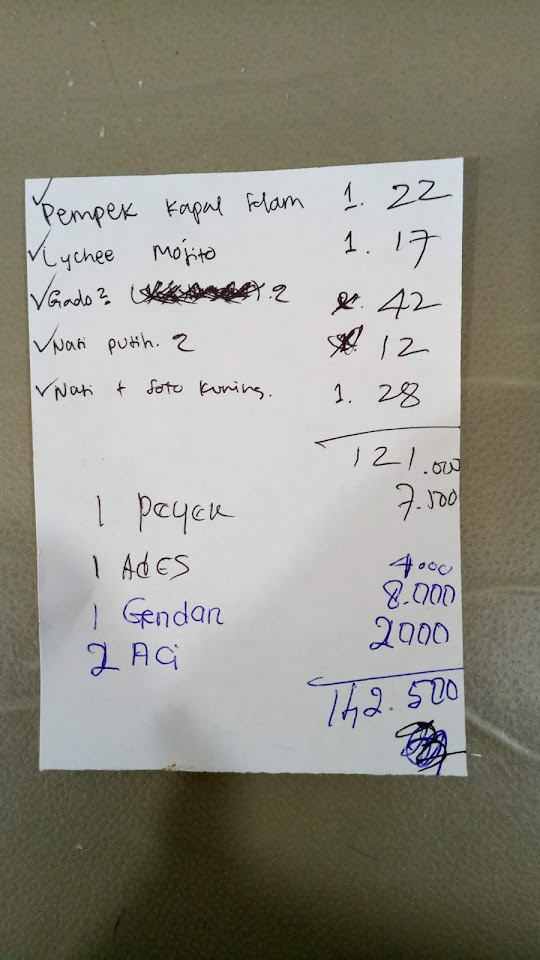 ✓ Pempek Kapal Selam 1. 22
✓ Lychee Mojito 1. 17
✓ Gado2 2 42
✓ Nasi putih. 2 12
✓ Nasi + Soto Kuning. 1. 28
121.000
1 Peyek 7.500
1 AdES 4000
1 Gendar 8.000
2 Aci 2000
142.500